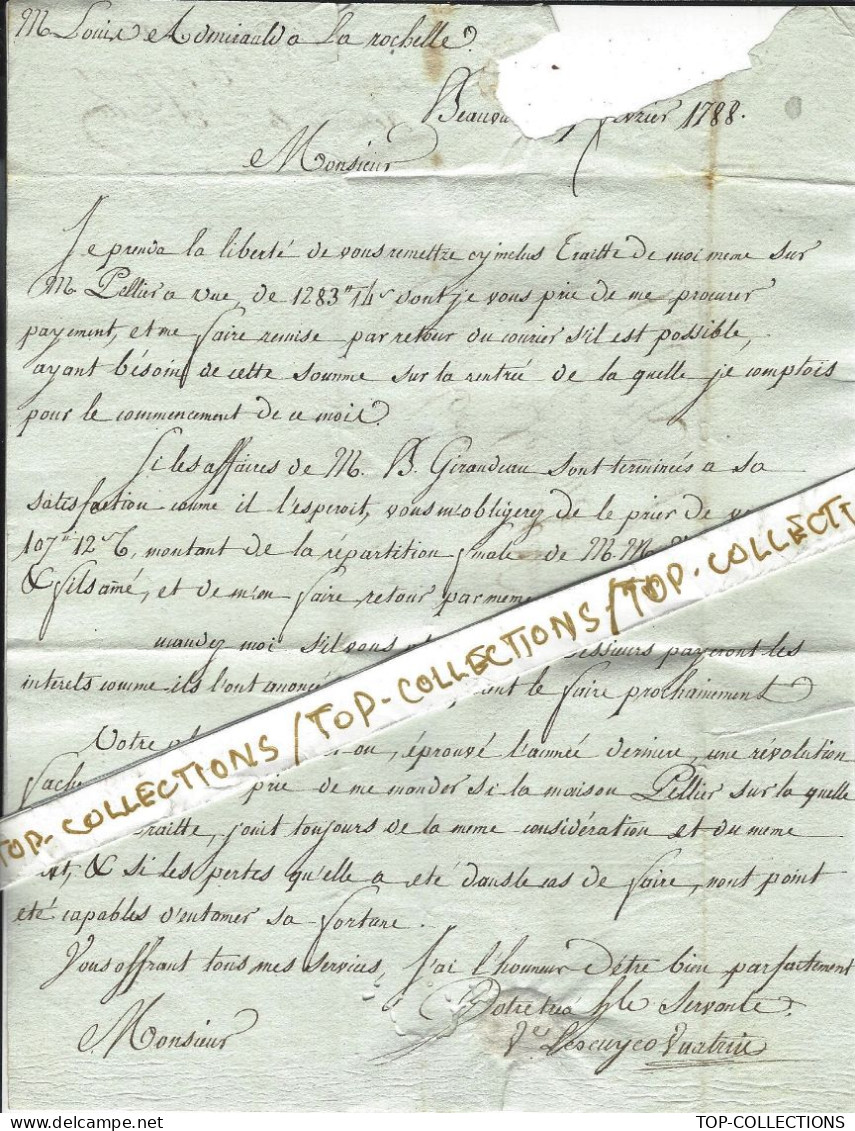 M Louis Admirauld a La rochelle.
Beauva février 1788.
Monsieur
Je prends la liberté de vous remettre cy inclus Traitte de moi meme sur
M. Pellier a vue, de 1283" 14s dont je vous prie de me procurer
payement, et me faire remise par retour du courier s'il est possible,
ayant bésoin de cette somme sur la rentrée de la quelle je comptois
pour le commencement de ce mois.
Si les affaires de M. B. Giraudeau sont terminées a sa
satisfaction comme il l'esperoit, vous m'obligerez de le prier de
107" 12s 6, montant de la répartition finale de M.M.
& fils aîné, et de m'en faire retour par meme
mandez moi s'il vous issieurs payeront les
interets comme ils l'ont anoncé nt le faire prochainement
Votre éprouvé l'année derniere, une révolution
fache prie de me mander si la maison Pellier sur la quelle
raitte, jouit toujours de la meme considération et du meme
& si les pertes qu'elle a été dans le cas de faire, n'ont point
eté capables d'entamer sa fortune.
Vous offrant tous mes services, J'ai l'honneur d'être bien parfaitement
Votre très hble Servante.
Monsieur Ve Lescuyer
TOP-COLLECTIONS / TOP-COLLECTIONS / TOP-COLLECTI
TOP-COLLECTIONS